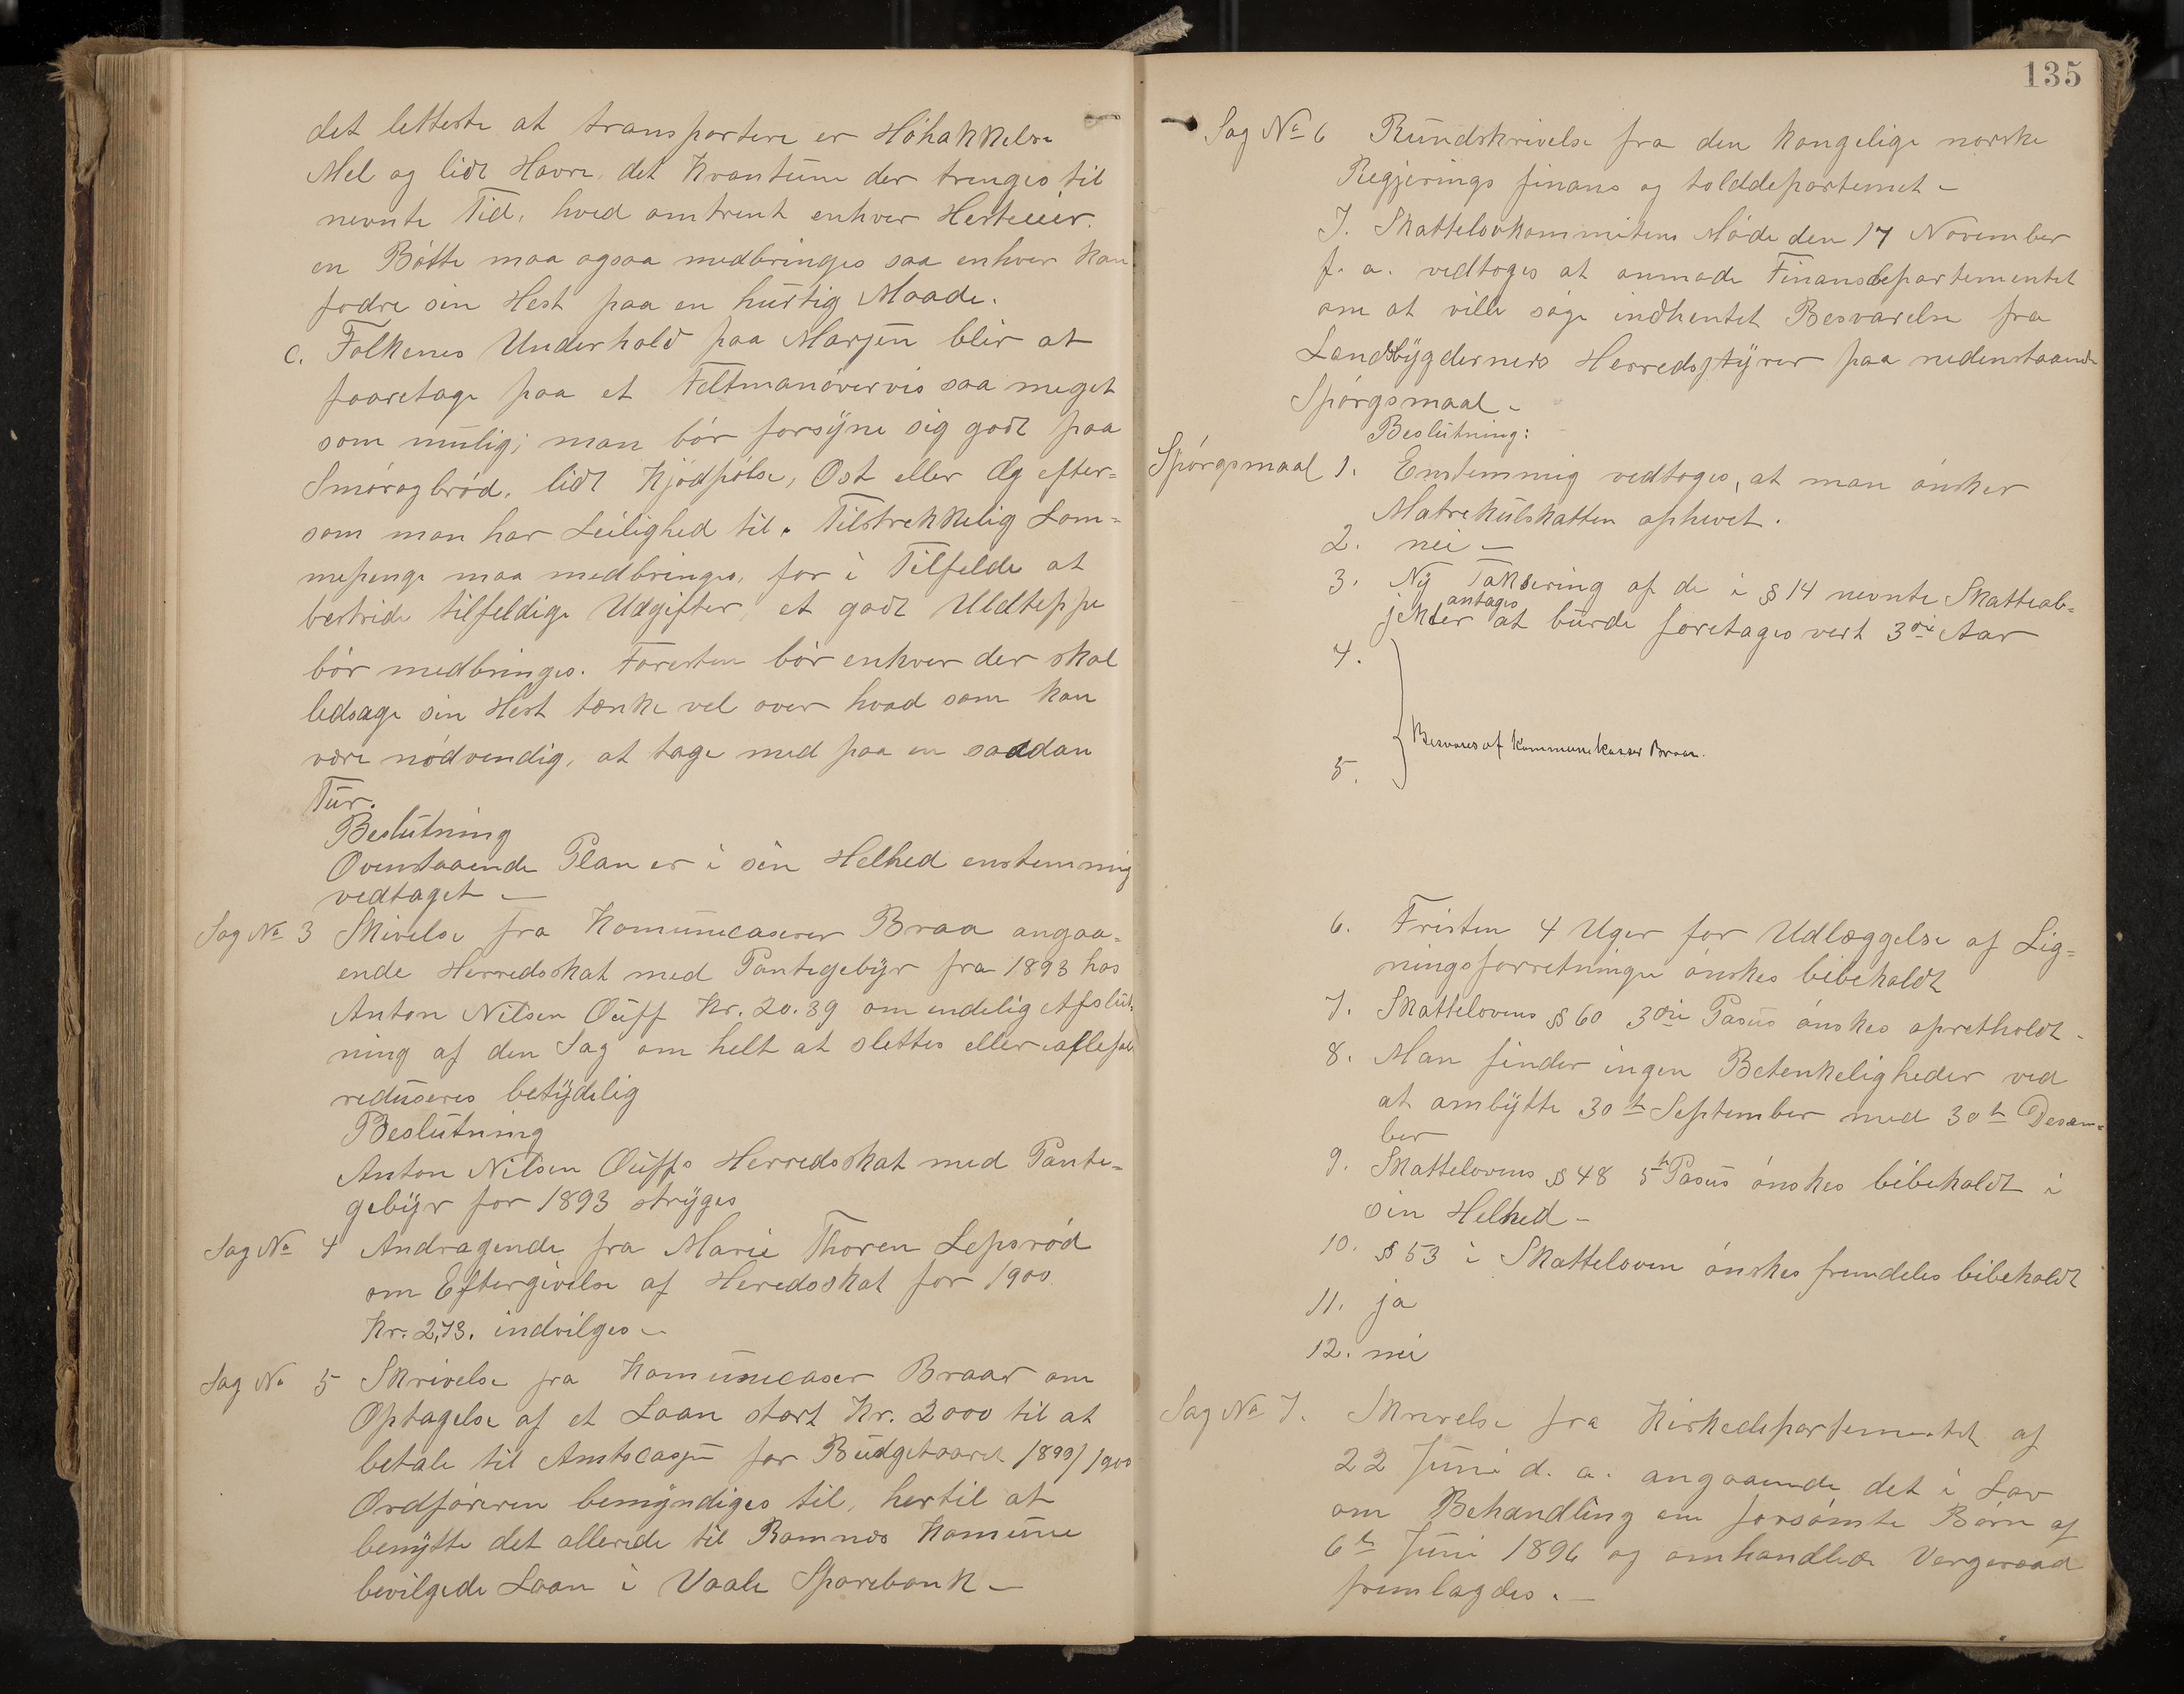 det letteste at transportere er Höhakkelse
Mel og lidt Havre, det Kvantum der trenges til
nevnte Tid, hved omtrent enhver Hesteeier.
en Bötte maa ogsaa medbringes saa enhver kan
fodre sin Hest paa en hurtig Maade.
c. Folkenes Underhold paa Marjen blir at
foaretage paa et Feltmanövervis saa meget
som mulig; man bör forsyne sig godt paa
Smörogbröd, lidt Kjödpölse, Ost eller Æg efter=
som man har Leilighed til. Tilstrekkelig Lom=
mepenge maa medbringes, for i Tilfelde at
bestride tilfeldige Udgifter, et godt Uldteppe
bör medbringes. Foresten bör enhver der skal
ledsage sin Hest tænke vel over hvad som kan
være nödvendig, at tage med paa en saadan
Tur.
Beslutning
Ovenstaaende Plan er i sin Helhed enstemmig
vedtaget –
Sag No 3 Skivelse fra Komunecaserer Braa angaa=
ende Herredsskat med Pantegebyr fra 1893 hos
Anton Nilsen Ouff Kr. 20.39 om endelig Afslut=
ning af den Sag om helt at slettes eller
reduseres betydelig
Beslutning
Anton Nilsen Ouffs Herredsskat med Pante=
gebyr for 1893 stryges
Sag No 4 Andragende fra Marie Thoren Lepsröd
om Eftergivelse af Heredsskat for 1900
Kr. 2,73. indvilges –
Sag No 5 Skrivelse fra Komunecaser Braar om
Optagelse af et Laan stort Kr. 2000 til at
betale til Amtscasen for Budgetaaret 1899/1900
Ordföreren bemyndiges til, hertil at
benytte det allerede til Ramnes Komune
bevilgede Laan i Vaale Sparebank –
135
Sag No 6 Rundskrivelse fra den kongelige norske
Regjerings finans og tolddepartemet –
I. Skattelovkommiteens Möde den 17 November
f. a. vedtoges at anmode Finansdepartementet
om at ville söge indhentet Besvarelse fra
Landsbygderners Herredstyrer paa nedenstaaende
Spörgsmaal –
Beslutning:
Spörgsmaal 1. Enstemmig vedtoges, at man önsker
Matrekulskatten ophevet.
2. nei –
3. Ny Taksering af de i § 14 nevnte Skatteob=
antages
jekter at burde foretages vert 3die Aar
4.
Besvares af Kommunekasser Braar.
5.
6. Fristen 4 Uger for Udlæggelse af Lig=
ningsforretninger önskes bibeholdt
7. Skattelovens § 60 3die Pasus önskes opretholdt –
8. Man finder ingen Betenkeligheder ved
at ombytte 30te September med 30te Desem=
ber
9. Skattelovens § 48 5te Pasus önskes bibeholdt i
sin Helhed –
10. § 53 i Skatteloven önskes fremdeles bibeholdt
11. ja
12. nei
Sag No 7. Skrivelse fra Kirkedepartementet af
22 Juni d. a. angaaende det i Lov
om Behandling em forsömte Börn af
6te Juni 1896 og omhandlede Vergeraad
fremlagdes. –